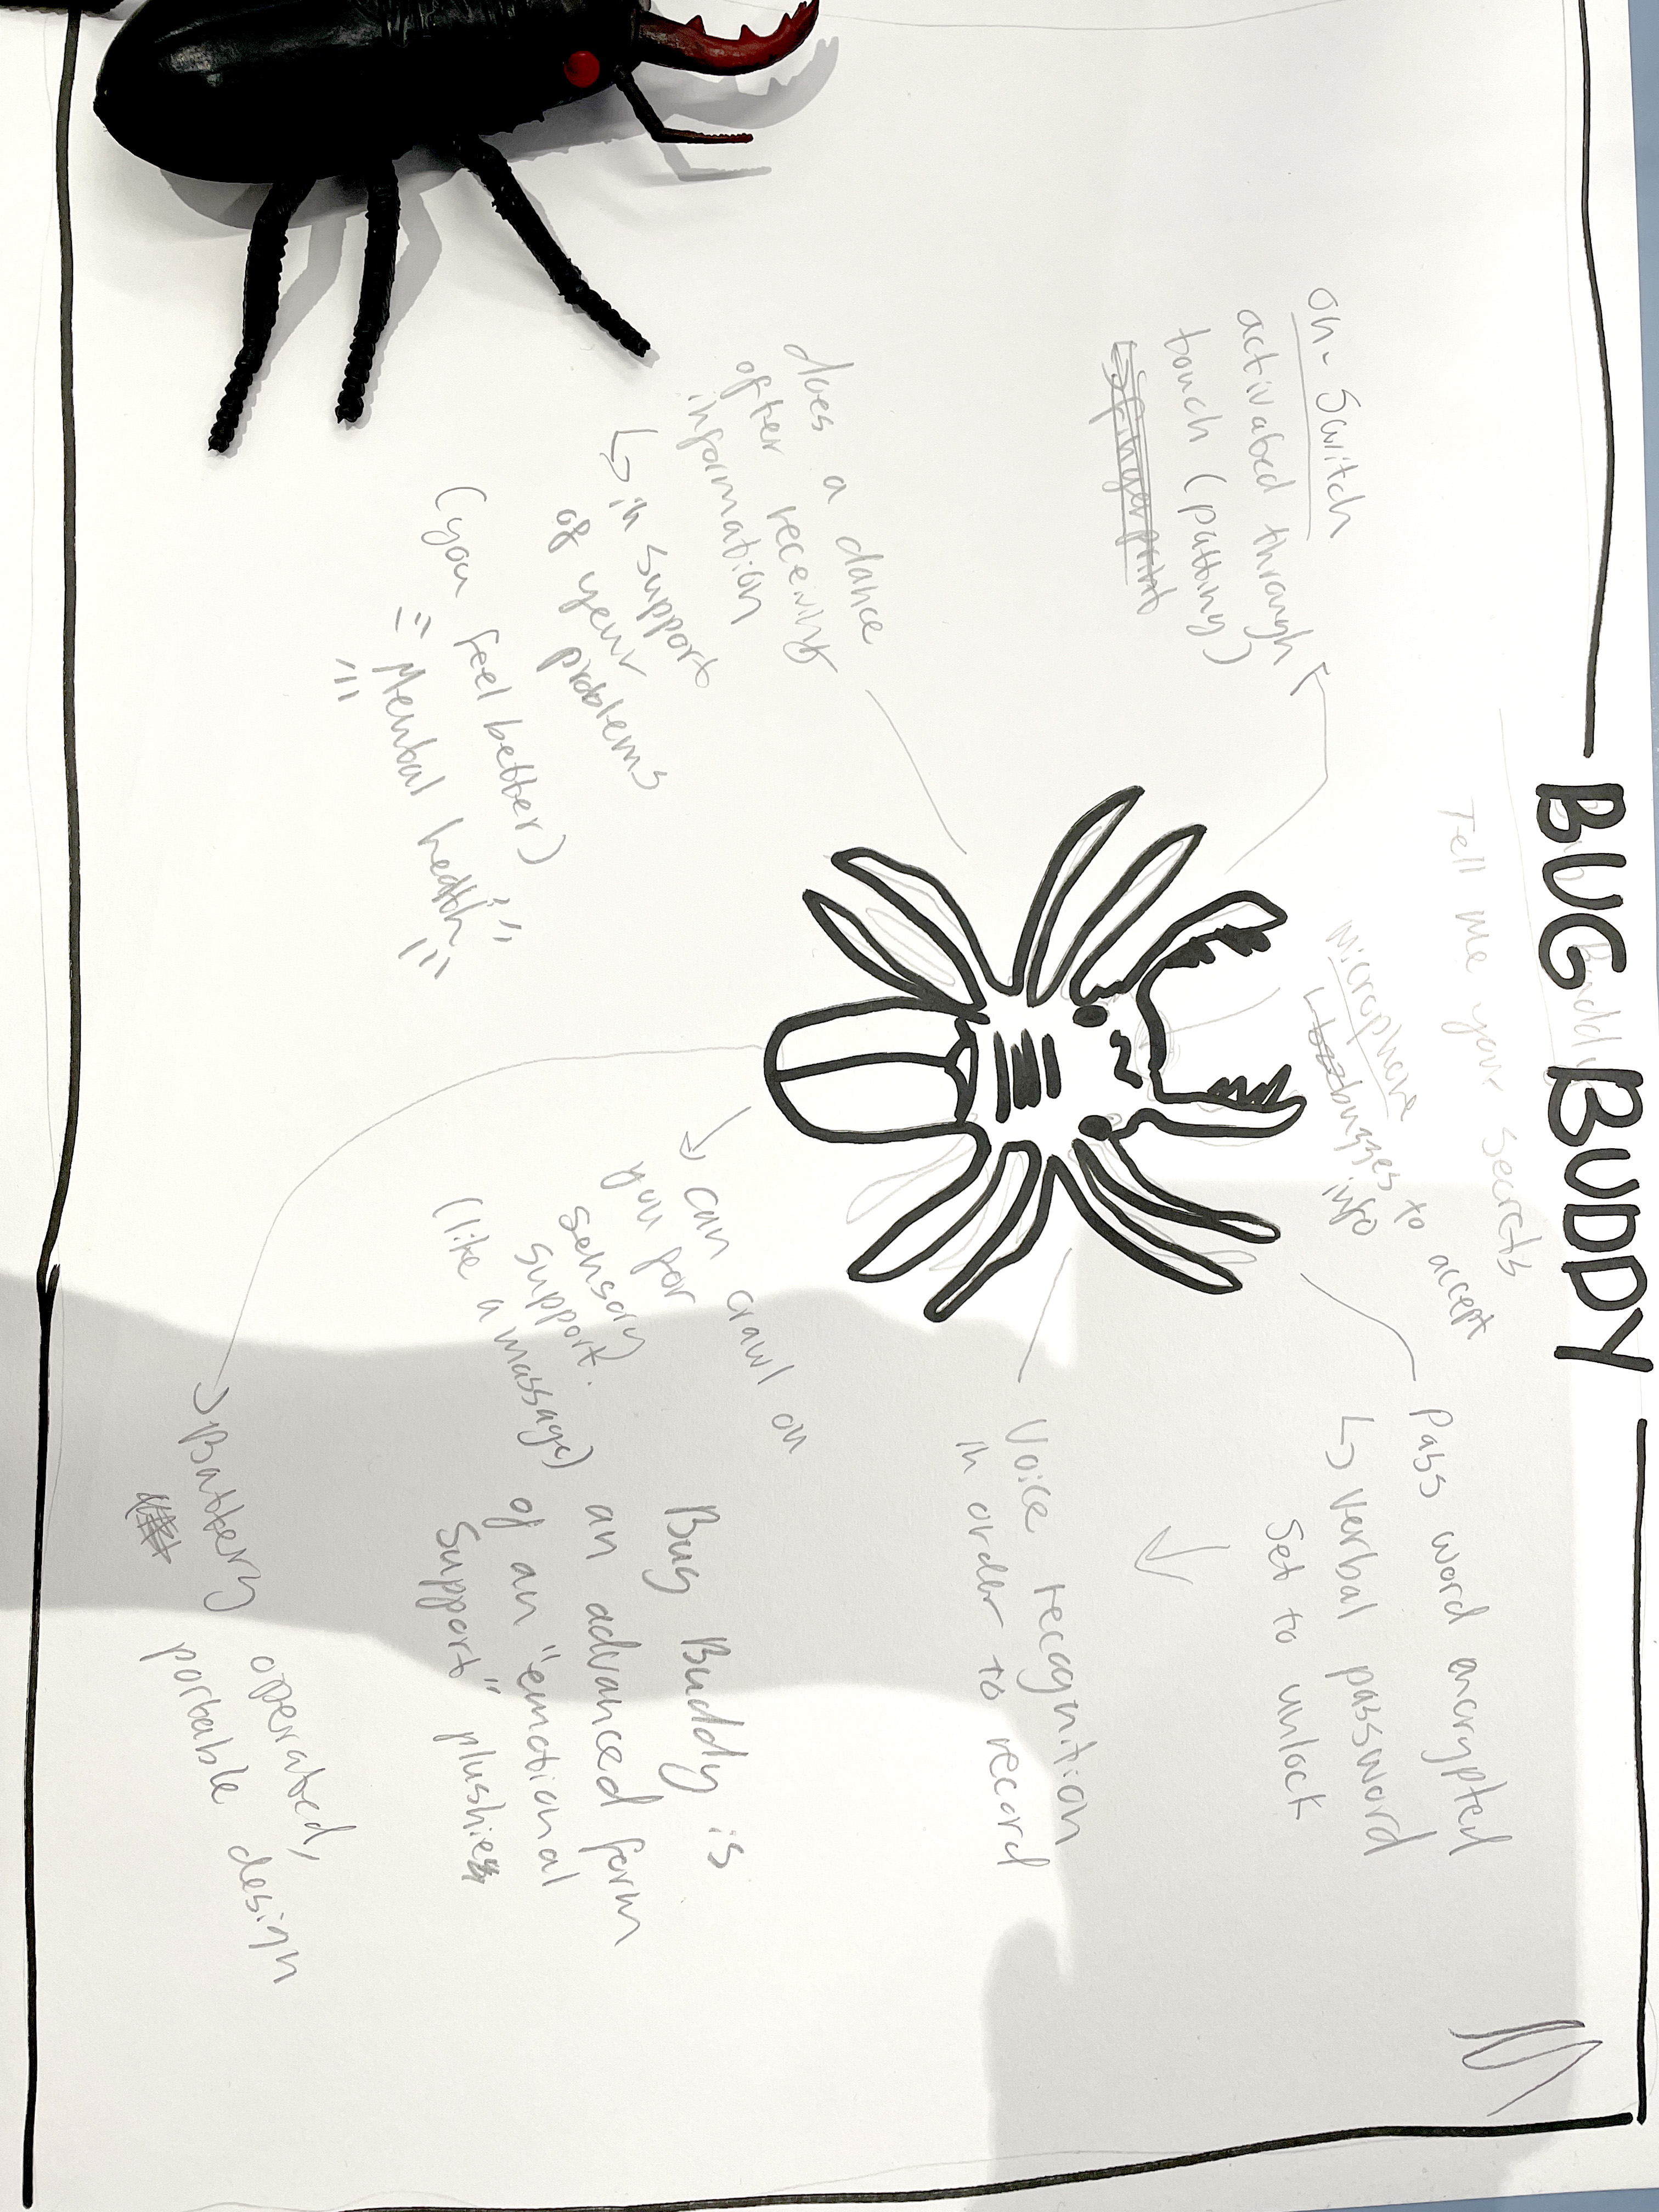 BUG BUDDY
Tell me your secrets
On-Switch
activated through
touch (patting)
microphone
buzzes to accept
info
Pass word encrypted
↳ verbal password
set to unlock
Voice recognition
in order to record
does a dance
after receiving
information
↳ in support
of your
problems
(you feel better)
Mental health
can crawl on
you for
sensory
support.
(like a massage)
Bug Buddy is
an advanced form
of an "emotional
support" plushies
Battery operated,
portable design